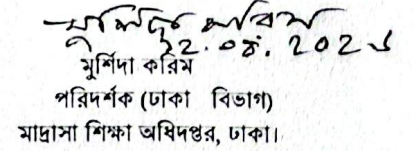 মুর্শিদা করিম
মুর্শিদা করিম
পরিদর্শক (ঢাকা বিভাগ)
মাদ্রাসা শিক্ষা অধিদপ্তর, ঢাকা।